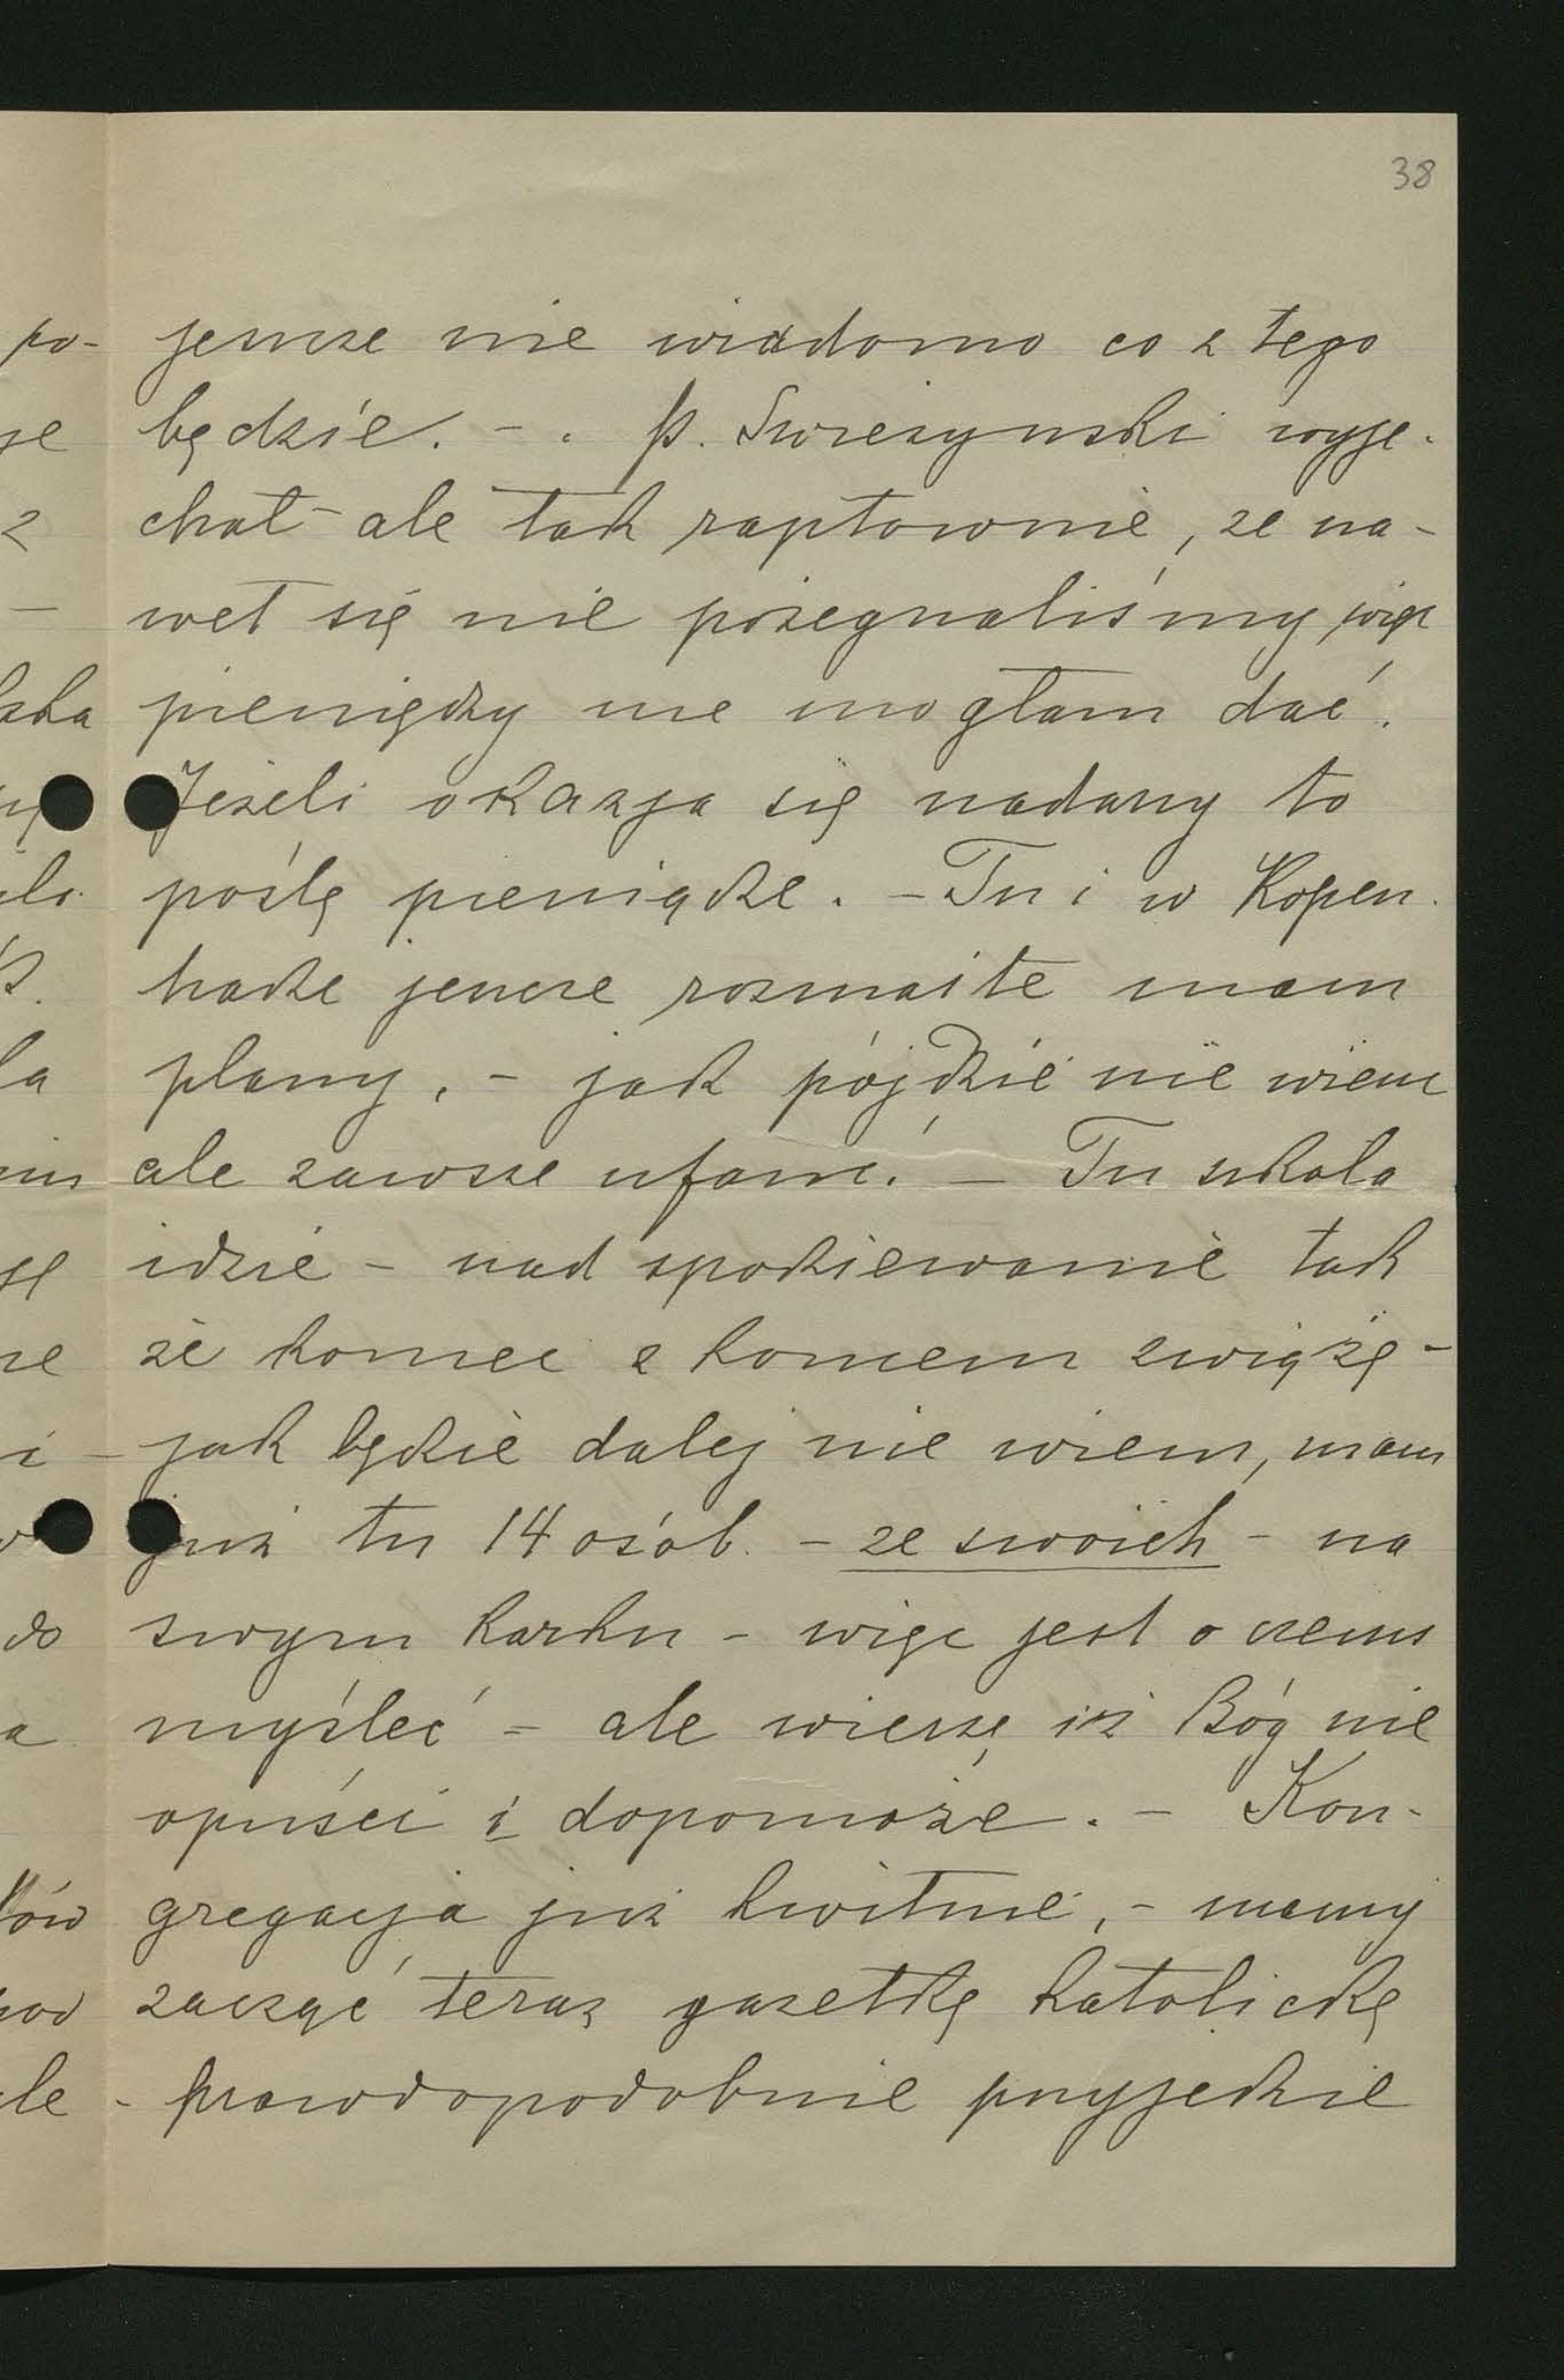 38
jeszcze nie wiadomo co z tego
będzie. - . p. Swiezynski wyje-
chał - ale tak raptownie, ze na-
wet się nie pożegnaliśmy, więc
pieniędzy nie mogłam dać.
Jeżeli okazja się nadarzy to
poślę pieniądze. - Tu i w Kopen-
hadze jeszcze rozmaite mam
plany, - jak pójdzie nie wiem
ale zawsze ufam. - Tu szkoła
idzie - nad spodziewanie tak
że koniec z końcem zwiążę -
- jak będzie dalej nie wiem, mam
już tu 14 osób. - ze swoich - na
swym karku - więc jest o czem
myśleć - ale wierzę, iż Bóg nie
opuści i dopomoże. - Kon-
gregacja już kwitnie, - mamy
zacząć teraz gazetkę katolicką
- prawdopodobnie przyjedzie